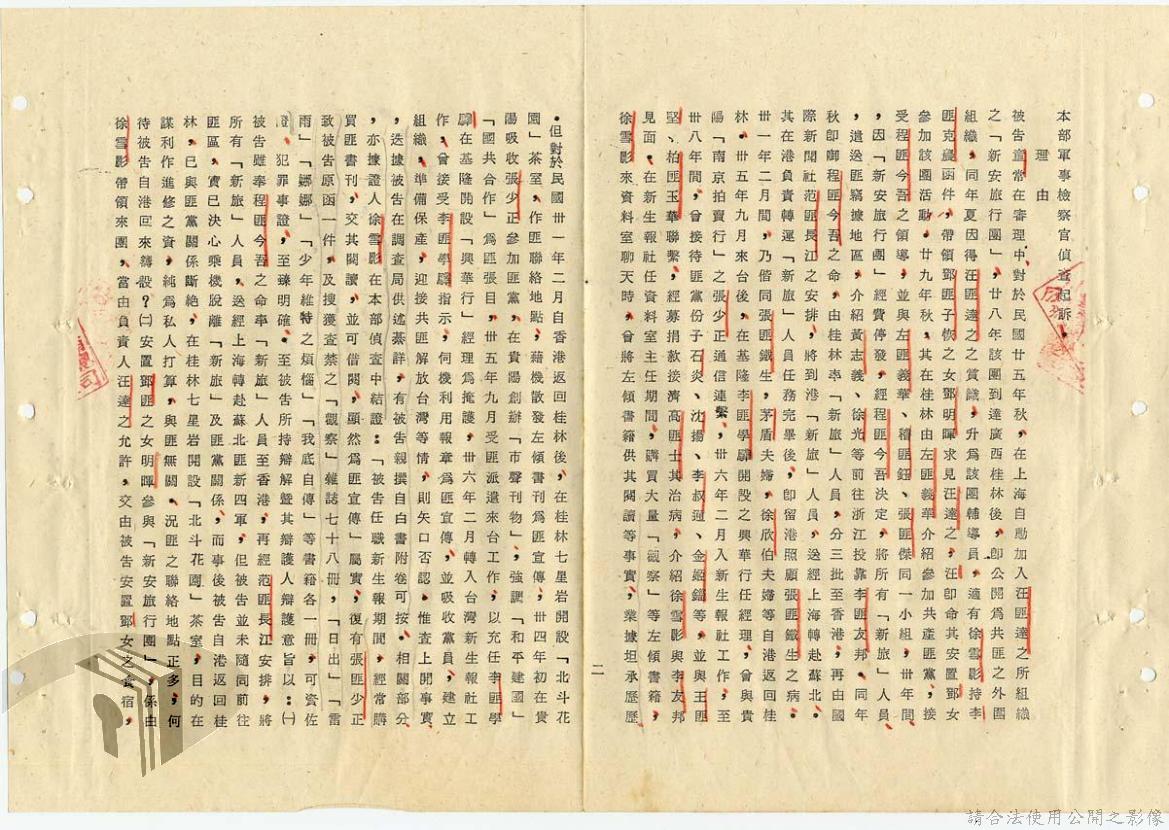 本部軍事檢察官偵查起訴。
理由
被告童常在審理中，對於民國廿五年秋，在上海自動加入汪匪達之所組織
之「新安旅行團」，廿八年該團到達廣西桂林後，卽公開爲共匪之外圍
組織，同年夏因得汪匪達之之賞識，升爲該團輔導員，適有徐雪影持李
匪克農函件，帶領鄧匪子恢之女鄧明暉求見汪達之，汪卽命其安置鄧女
參加該團活動，廿九年秋，其在桂林由左匪義華介紹參加共產匪黨，接
受程匪今吾之領導，並與左匪義華、稽匪鈺、張匪傑同一小組，卅年間
，因「新安旅行團」經費停發，經程匪今吾決定，將所有「新旅」人員
，遣送匪竊據地區，介紹黃志義、徐光等前往浙江投靠李匪友邦。同年
秋卽御程匪今吾之命，由桂林率「新旅」人員，分三批至香港，再由國
際新聞社范匪長江之安排，將到港「新旅」人員，送經上海轉赴蘇北。
其在港負責轉運「新旅」人員任務完畢後，卽留港照顧張匪鐵生之病。
卅一年二月間，乃偕同張匪鐵生，茅盾夫婦，徐欣伯夫婦等自港返回桂
林。卅五年九月來台後，在基隆李匪學驊開設之興華行任經理，曾與貴
陽「南京拍賣行」之張少正通信連繫，卅六年二月入新生報社工作，至
卅八年間，曾接待匪黨份子石炎、沈揚、李叔迥、金姬鎦等，並與王匪
堅、柏匪玉華聯繫，經募捐款接濟高匪士其治病，介紹徐雪影與李友邦
見面，在新生報社任資料室主任期間，購買大量「觀察」等左傾書籍，
徐雪影來資料室聊天時，曾將左傾書籍供其閱讀等事實，業據坦承歷歷
二
。但對於民國卅一年二月自香港返回桂林後，在桂林七星岩開設「北斗花
園」茶室，作匪聯絡地點，藉機散發左傾書刊爲匪宣傳，卅四年初在貴
陽吸收張少正參加匪黨，在貴陽創辦「市聲刊物」，強調「和平建國」
「國共合作」爲匪張目，卅五年九月受匪派遣來台工作，以充任李匪學
驊在基隆開設「興華行」經理爲掩護，卅六年二月轉入台灣新生報社工
作，曾接受李匪學驊指示，伺機利用報章爲匪宣傳，並吸收黨員，建立
組織，準備保產，迎接共匪解放台灣等情，則矢口否認。惟查上開事實
，迭據被告在調查局供述綦詳，有被告親撰自白書附卷可按。相關部分
，亦據證人徐雪影在本部偵查中結證：「被告任職新生報期間，經常購
買匪書刊，交其閱讀，並可借閱，顯然爲匪宣傳」屬實，復有張匪少正
致被告原函一件，及搜獲查禁之「觀察」雜誌七十八冊，「日出」「雷
雨」「娜娜」「少年維特之煩惱」「我底自傳」等書籍各一冊，可資佐
證，犯罪事證，至臻明確。至被告所持辯解暨其辯護人辯護意旨以：㈠
被告雖奉程匪今吾之命率「新旅」人員至香港，再經范匪長江安排，將
所有「新旅」人員，送經上海轉赴蘇北匪新四軍，但被告並未隨同前往
匪區，實已決心乘機脫離「新旅」及匪黨關係，而事後被告自港返回桂
林，已與匪黨關係斷絶，在桂林七星岩開設「北斗花園」茶室，目的在
謀利作進修之資，純爲私人打算，與匪無關。況匪之聯絡地點正多，何
待被告自港回來籌設？㈡安置鄧匪之女明暉參與「新安旅行團」，係由
徐雪影帶領來團，當由負責人汪達之允許，交由被告安置鄧女之食宿，
請合法使用公開之影像